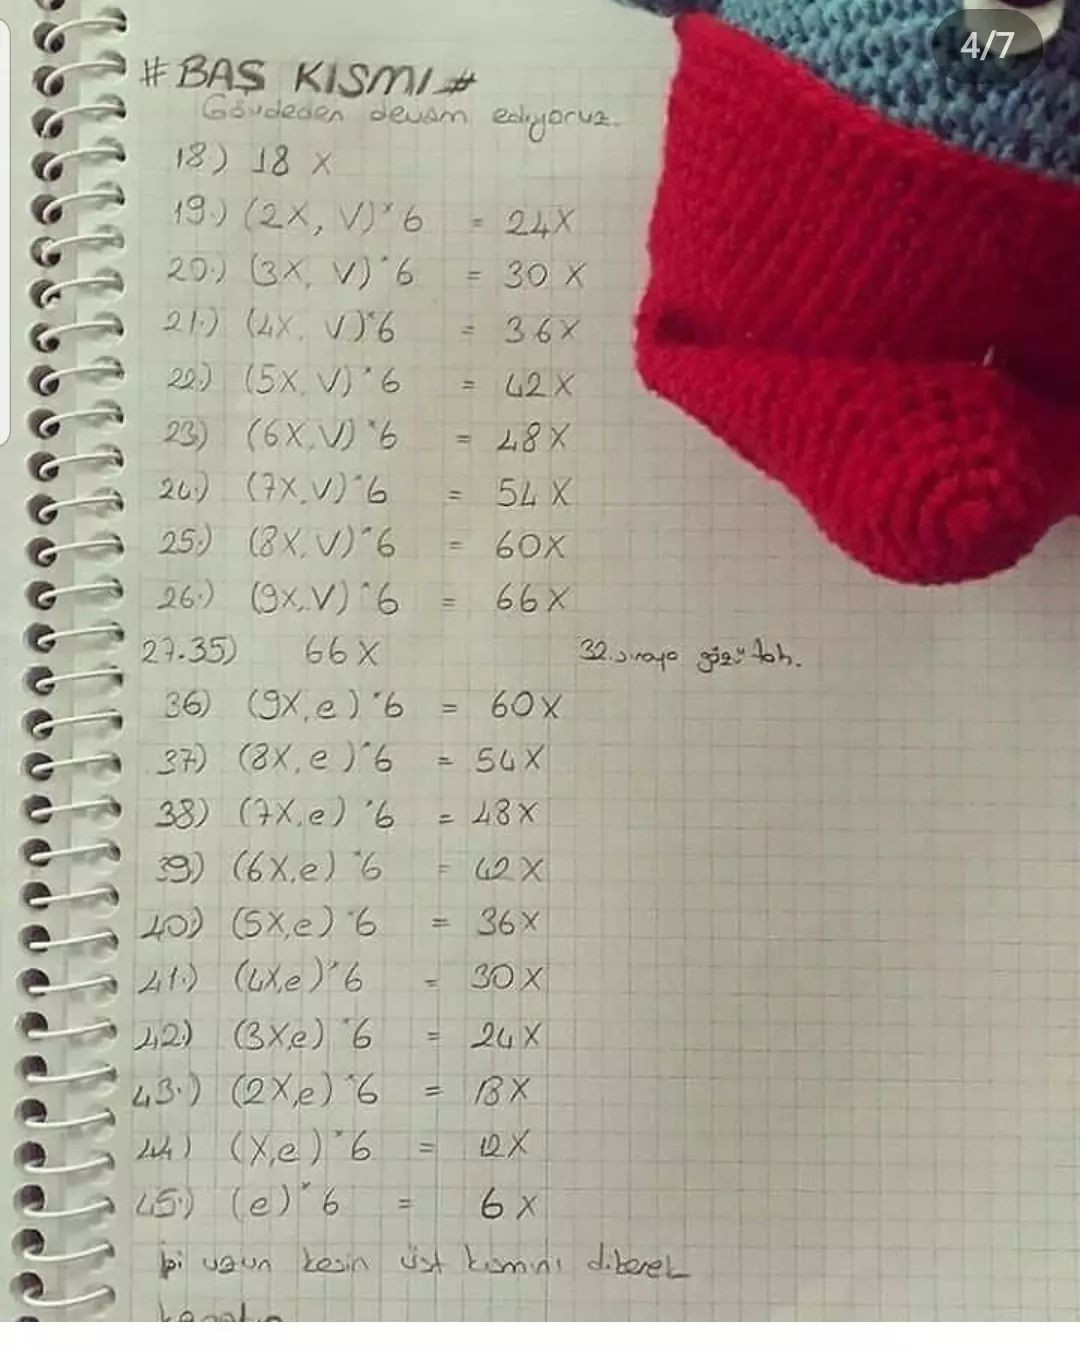 4/7
#BAŞ KISMI#
Gövdeden devam ediyoruz.
18.) 18 X
19.) (2X, V)*6 = 24X
20.) (3X, V)*6 = 30 X
21.) (4X, V)*6 = 36X
22.) (5X, V)*6 = 42X
23) (6X,V)*6 = 48X
24.) (7X,V)*6 = 54 X
25.) (8X,V)*6 = 60X
26.) (9X,V)*6 = 66X
27.35) 66 X 32.sıraya gözü tak.
36) (9X,e)*6 = 60X
37) (8X,e)*6 = 54X
38) (7X,e)*6 = 48X
39) (6X,e)*6 = 42X
40.) (5X,e)*6 = 36X
41.) (4X,e)*6 = 30X
42.) (3X,e)*6 = 24X
43.) (2X,e)*6 = 18X
44) (X,e)*6 = 12X
45.) (e)*6 = 6X
ipi uzun kesin üst kısmını dikerek
kapatın